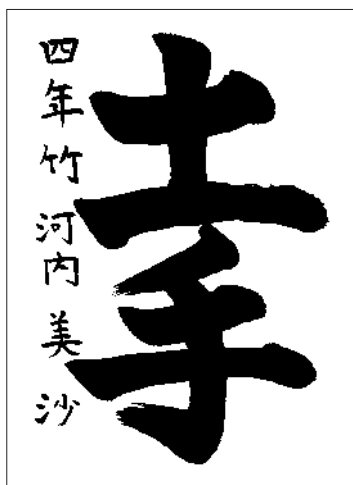 土手
四年竹 河内 美沙